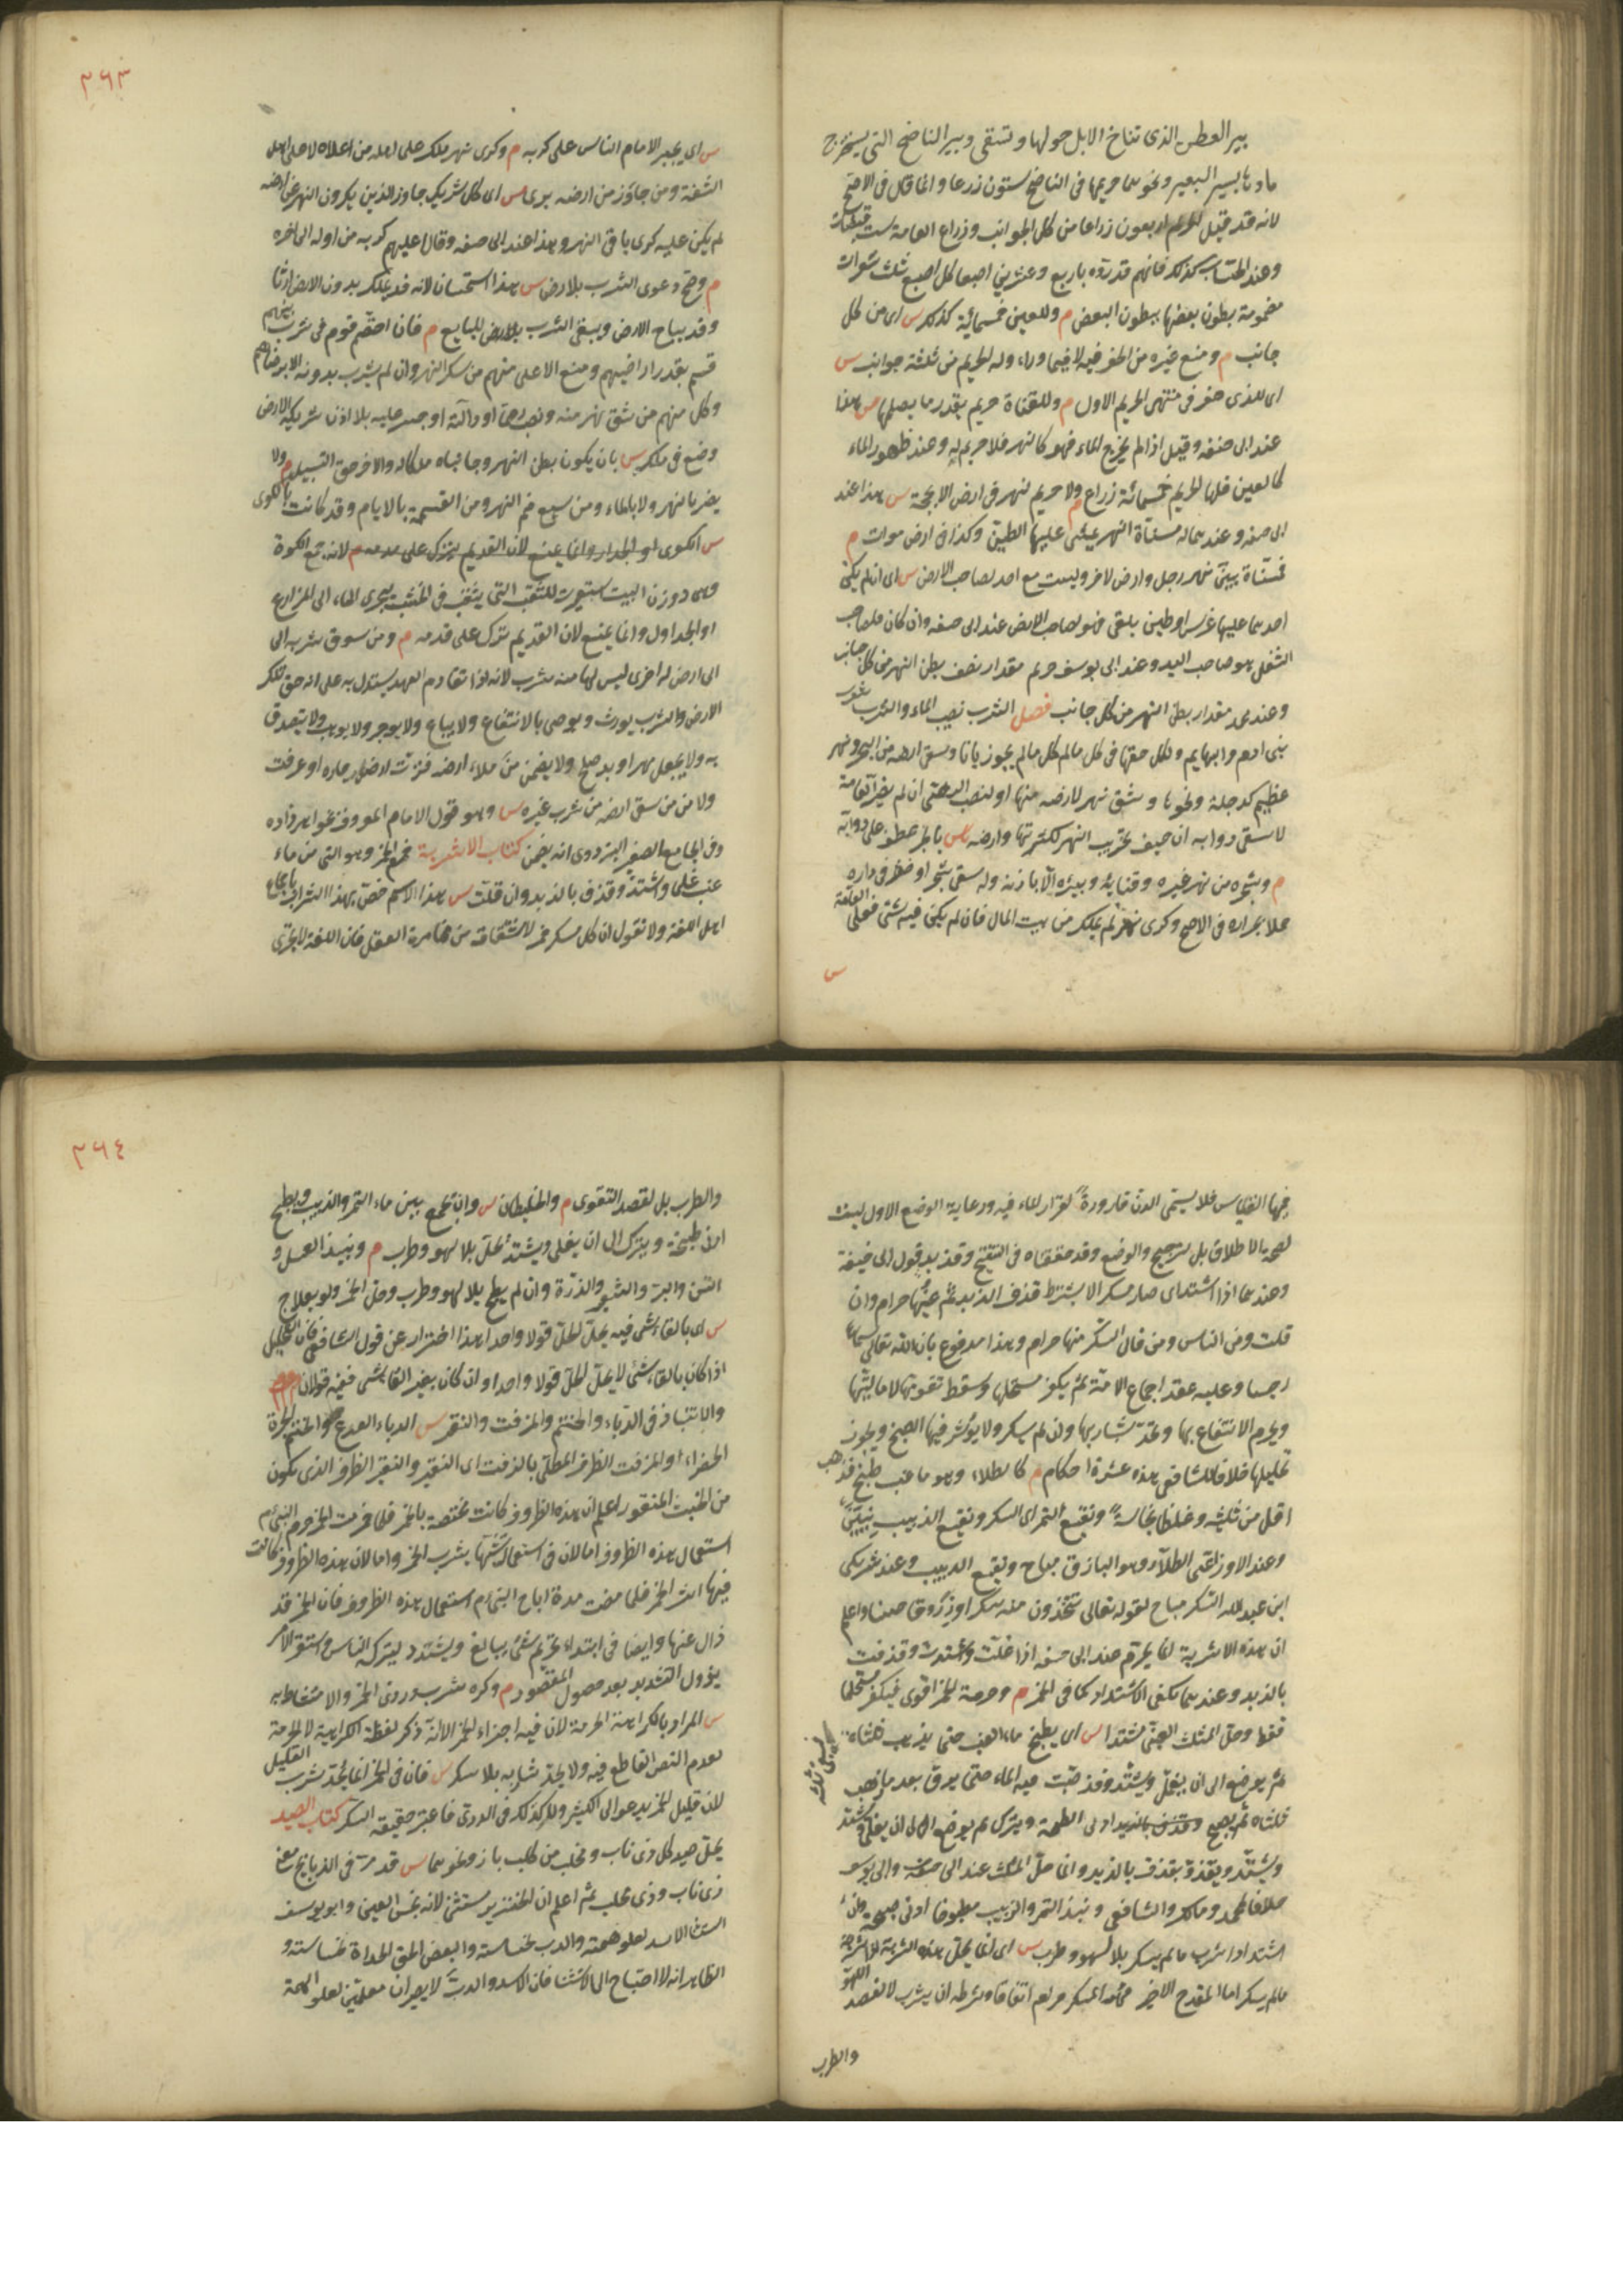 بير العطن الذى تناخ الابل حولها وتسقى وبير الناضح التى يستخرج
ماؤها بسير البعير ونحوهما حريمها فى الناضح ستون زرعا وانما قال فى الاصح
لانه قد قيل اربعون زراعا من كل الجوانب وزراع العامة ست قبضات
وعند الحساب كذلك فانهم قدروه باربع وعشرين اصبعا كل اصبع ثلث شعرات
مضمومة بطون بعضها ببطون البعض م وللعين خمسمائة كذلك س اى من كل
جانب م ومنع غيره من الحفر فيه لا فيما وراء وله الحريم من ثلثة جوانب س
اى للذى حفر فى منتهى الحريم الاول م وللقناة حريم بقدر ما يصلها س هذا
عند ابى حنيفه وقيل اذا لم يخرج الماء فهو كالنهر فلا حريم له وعند ظهور الماء
كالعين فلها الحريم خمسمائة زراع م ولا حريم لنهر فى ارض الا بحجة س هذا عند
ابى حنيفه وعندهما له مسناة النهر يمشى عليها ويلقى عليها الطين وكذا فى ارض موات م
فمسناة بين نهر رجل وارض لاخر وليست مع احد لصاحب الارض س اى ان لم يكن
احدهما عليها غرس او طين يلقى فهو لصاحب الارض عند ابى حنيفه وان كان فلصاحب
الشغل هو صاحب اليد وعند ابى يوسف حريم مقدار نصف بطن النهر من كل جانب
وعند محمد مقدار بطن النهر من كل جانب فصل الشرب نصيب الماء والشرب شرب
بنى ادم والبهايم ولكل حقها فى كل ما لم يحرز باناء وسقى ارضه من البحر ونهر
عظيم كدجلة ونحوها وشق نهر لارضه منها او لنصب الرحى ان لم يضر العامة
لا سقى دوابه ان خيف تخريب النهر لكثرتها وارضه س بالجر عطف على دوابه
م وشجره من نهر غيره وقناته وبيئره الا باذنه وله سقى شجر او خضر فى داره
حملا بجراره فى الاصح وكرى نهر لم يملك من بيت المال فان لم يكن فيه شئ فعلى العامة
س
٣٦٣
س اى يجبر الامام الناس على كريه م وكرى نهر ملك على اهله من اعلاه لا على اهل
الشفة ومن جاوز من ارضه برى س اى كل شريك جاوز الذين يكرون النهر عن ارضه
لم يكن عليه كرى باقى النهر وهذا عند ابى حنيفه وقالا عليهم كريه من اوله الى اخره
م وصح دعوى الشرب بلا ارض س هذا استحسان لانه قد يملك بدون الارض ارثا
وقد يباع الارض ويبقى الشرب للبايع م فان اختصم قوم فى شرب بينهم
قسم بقدر اراضيهم ومنع الاعلى منهم من سكر النهر وان لم يشرب بدونه الا برضاهم
وكل منهم من شق نهر منه ونصب رحى او دالية او جسر عليه بلا اذن شريكه الا رحى
وضع فى ملكه س بان يكون بطن النهر وجانباه ملكا له وللاخر حق التسييل م ولا
يضر بالنهر ولا بالماء ومن توسيع فم النهر ومن القسمة بالايام وقد كانت بالكوى
س الكوى او الجدار وانما يمنع لان القديم يترك على قدمه م لانه جمع الكوة
وهى روزن البيت استعيرت للثقب التى يثقب فى الخشب ليجرى الماء الى المزارع
او الجداول وانما يمنع لان القديم يترك على قدمه م ومن سوق شربه الى
الى ارض له اخرى ليس لها منه شرب لانه اذا تقادم العهد يستدل به على انه حق تلك
الارض والشرب يورث ويوصى بالانتفاع ولا يباع ولا يوجر ولا يوهب ولا يتصدق
به ولا يجعل مهرا وبدل صلح ولا يضمن من ملأ ارضه فنزت ارض جاره او غرقت
ولا من من سقى ارضه من شرب غيره س وهو قول الامام المعروف بخواهر زاده
وفى الجامع الصغير البزدوى انه يضمن كتاب الاشربة حرم الخمر وهو التى من ماء
عنب غلى واشتد وقذف بالزبد وان قلت س هذا الاسم خص بهذا الشراب باجماع
اهل اللغة ولا نقول ان كل مسكر خمر لاشتقاقه من مخامرة العقل فان اللغة لا يجرى
فيها القياس فلا يسمى الدن قارورة لقرار الماء فيه ورعاية الوضع الاول ليست
لصحة الاطلاق بل لترجيح والوضع وقد حققناه فى التنقيح وقذف بالزبد قول ابى حنيفة
وعندهما اذا اشتد اى صار مسكرا لا يشترط قذف الزبد ثم عينها حرام وان
قلت ومن الناس ومن قال السكر منها حرام وهذا مدفوع بان الله تعالى سماه
رجسا وعليه عقد اجماع الامة ثم يكفر مستحلها وسقط تقومها لا ماليتها
ويحرم الانتفاع بها وتحد شاربها وان لم يسكر ولا يؤثر فيها الطبخ ويجوز
تخليلها خلافا للشافعى هذه عشرة احكام م كالطلاء وهو ماء عنب طبخ فذهب
اقل من ثلثيه وغلظا نجاسة ونقيع التمر اى السكر ونقيع الزبيب نيين
وعند الاوزاعى الطلاء وهو الباذق مباح ونقيع الزبيب وعند شريك
ابن عبدالله السكر مباح لقوله تعالى تتخذون منه سكرا ورزقا حسنا واعلم
ان هذه الاشربة انما يحرم عند ابى حنيفه اذا غلت واشتدت وقذفت
بالزبد وعندهما يكفى الاشتداد كما فى الخمر م وحرمة الخمر اقوى فيكفر مستحلها
فقط وحل المثلث العنبى مشتدا س اى يطبخ ماء العنب حتى يذهب ثلثاه
ثم يوضع الى ان يغلى ويشتد وقد صبت فيه الماء حتى يرق بعد ما ذهب
ثلثاه ثم يطبخ ادنى الطبخة ويترك ثم يوضع الى ان يغلى ويشتد
ويشتد ويقذف بالزبد وانما حل المثلث عند ابى حنيفه وابى يوسف
خلافا لمحمد ومالك والشافعى ونبذ التمر والزبيب مطبوخا ادنى طبخة وان
اشتد اذا شرب ما لم يسكر بلا لهو وطرب س اى انما يحل هذه الاشربة اذا شرب
ما لم يسكر اما القدح الاخير وهو المسكر حرام اتفاقا وشرطه ان يشرب لا لقصد اللهو
والطرب
٣٦٤
والطرب بل لقصد التقوى م والخليطان س وان يجمع بين ماء التمر والزبيب ويطبخ
ادنى طبخة ويترك الى ان يغلى ويشتد يحل بلا لهو وطرب م ونبيذ العسل و
التين والبر والشعير والذرة وان لم يطبخ بلا لهو وطرب وخل الخمر ولو بعلاج
س اى بالقاء شئ فيه يحل الخل قولا واحدا هذا احتراز عن قول الشافعى فان التخليل
اذا كان بالقاء شئ لا يحل الخل قولا واحدا وان كان بغير القاء شئ ففيه قولان م
والانتباذ فى الدباء والحنتم والمزفت والنقير س الدباء القرع والحنتم الجرة
الخضراء والمزفت الظرف المطلى بالزفت اى القير والنقير الظرف الذى يكون
من الخشب المنقور اعلم ان هذه الظروف كانت مختصة بالخمر فلما حرمت الخمر حرم النبى ءم
استعمال هذه الظروف اما لان فى استعمالها تشبها بشرب الخمر واما لان هذه الظروف كانت
فيها اثر الخمر فلما مضت مدة اباح النبى ءم استعمال هذه الظروف فان الخمر قد
زال عنها وايضا فى ابتداء تحريم شئ يبالغ ويشدد ليترك الناس واستقر الامر
يزول التشديد بعد حصول المقصود م وكره شرب دردى الخمر والامتشاط به
س المراد بالكراهة الحرمة لان فيه اجزاء الخمر الا انه ذكر لفظة الكراهية لا الحرمة
لعدم النص القاطع فيه ولا يحد شاربه بلا سكر س فان فى الخمر انما يحد بشرب القليل
لان قليل الخمر يدعو الى الكثير ولا كذلك فى الدردى فاعتبر حقيقة السكر كتاب الصيد
يحل صيد كل ذى ناب ومخلب من كلب باز ونحوهما س قد مر فى الذبايح معنى
ذى ناب وذى مخلب ثم اعلم ان الخنزير مستثنى لانه نجس العين وابو يوسف
استثنى الاسد لعلو همته والدب لخساسته والبعض الحق الحدأة لخساسته و
الظاهر انه لا احتياج الى الاستثناء فان الاسد والدب لا يصيران معلمين لعلو الهمة